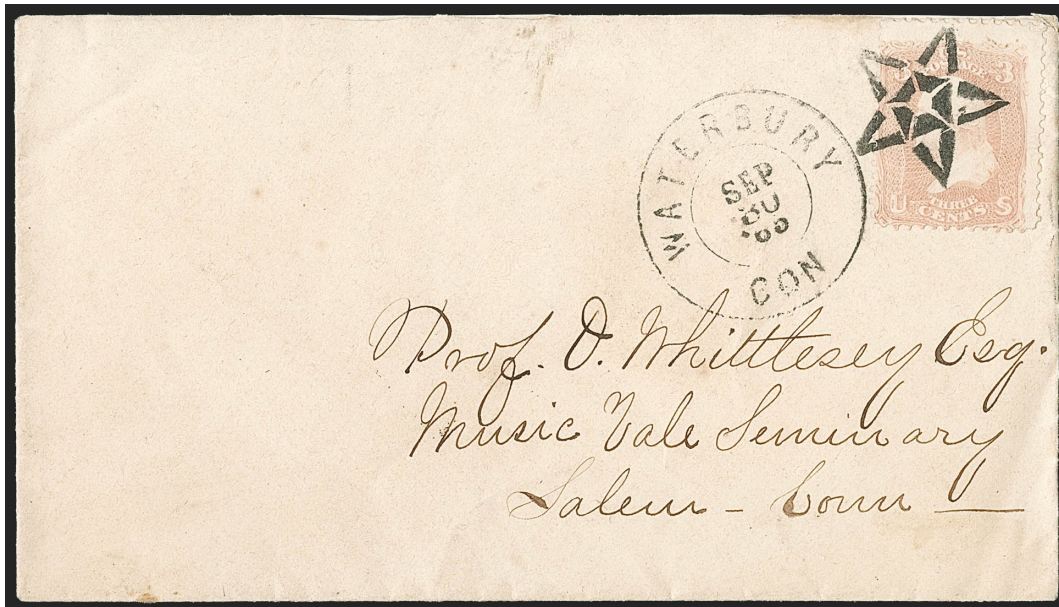 POSTAGE 3
WATERBURY
SEP
30
'65
CON
U THREE S
CENTS
Prof. O. Whittlesey Esq.
Music Vale Seminary
Salem - Conn